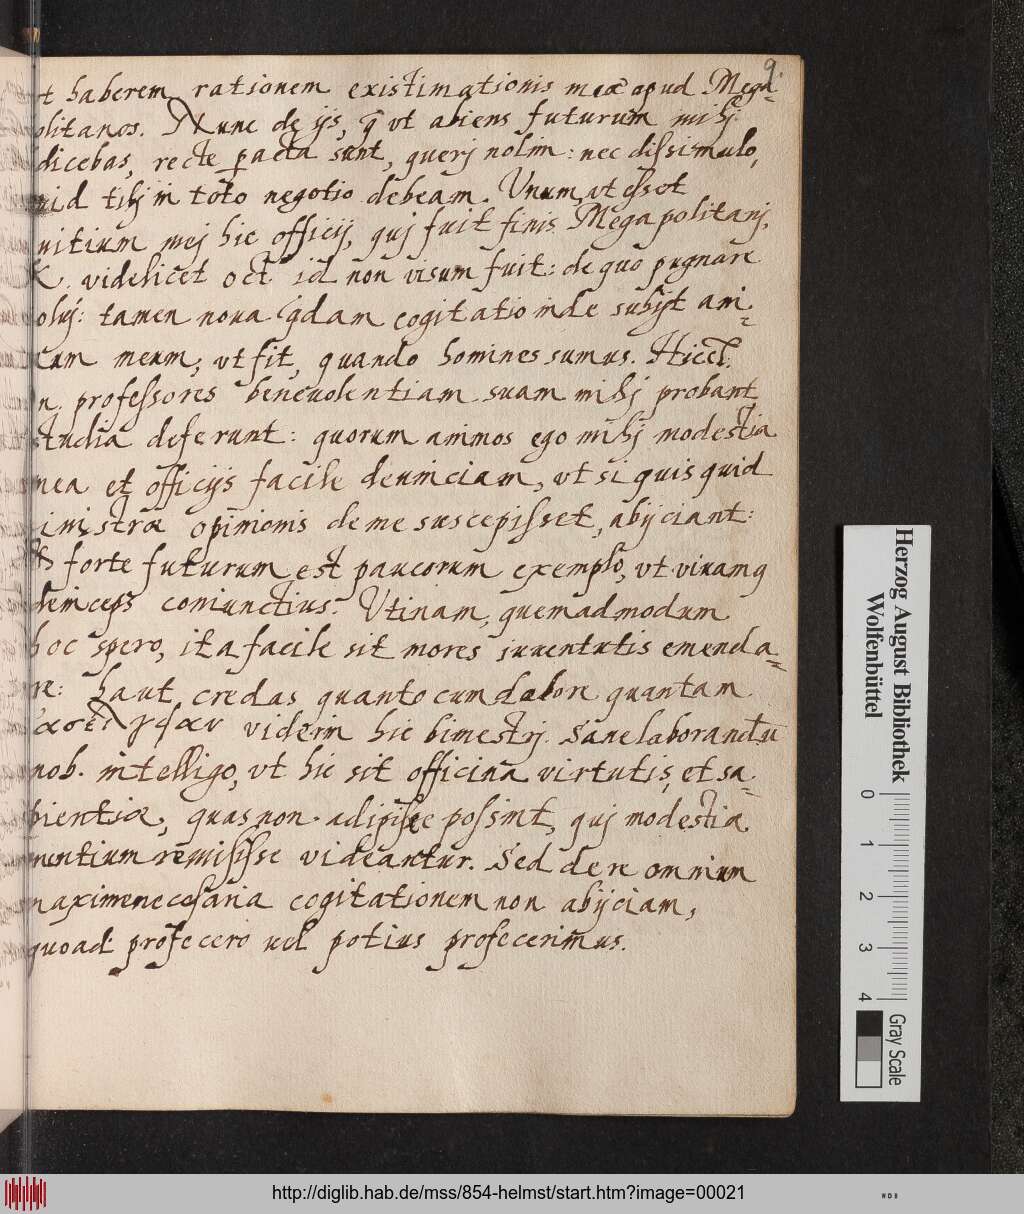 9.
t haberem rationem existimationis meæ apud Mega-
olitanos. Nunc de ijs, q̃ vt abiens futurum mihj
dicebas, recte pacta sunt, querj nolim: nec dissimulo,
uid tibj in toto negotio debeam. Unum, vt esset
nitium mej hic officij, quj fuit finis Megapolitanj,
videlicet oct id non visum fuit: de quo pugnare
oluj: tamen noua q̃dam cogitatio inde subijt ani-
um meum, vt fit, quando homines sumus. Hic cl.
n. professores beneuolentiam suam mihj probant
studia deferunt: quorum animos ego mihj modestia
mea et officijs facile deuinciam, vt si quis quid
inistræ opinionis de me suscepisset, abijciant:
forte futurum est paucorum exemplo, vt viuamq
deinceps coniunctius. Utinam, quemadmodum
hoc spero, ita facile sit mores iuuentutis emenda-
re: haut credas quanto cum dolore quantam
viderim hic bimestrj. Sane laborandũ
nob. intelligo, vt hic sit officina virtutis, et sa-
pientiæ, quas non adipisce possint, quj modestiæ
nuntium remisisse videantur. Sed de re omnium
maxime necessaria cogitationem non abijciam,
quoad profecero uel potius profecerimus.
Herzog August Bibliothek
Wolfenbüttel
0 1 2 3 4
Gray Scale
http://diglib.hab.de/mss/854-helmst/start.htm?image=00021